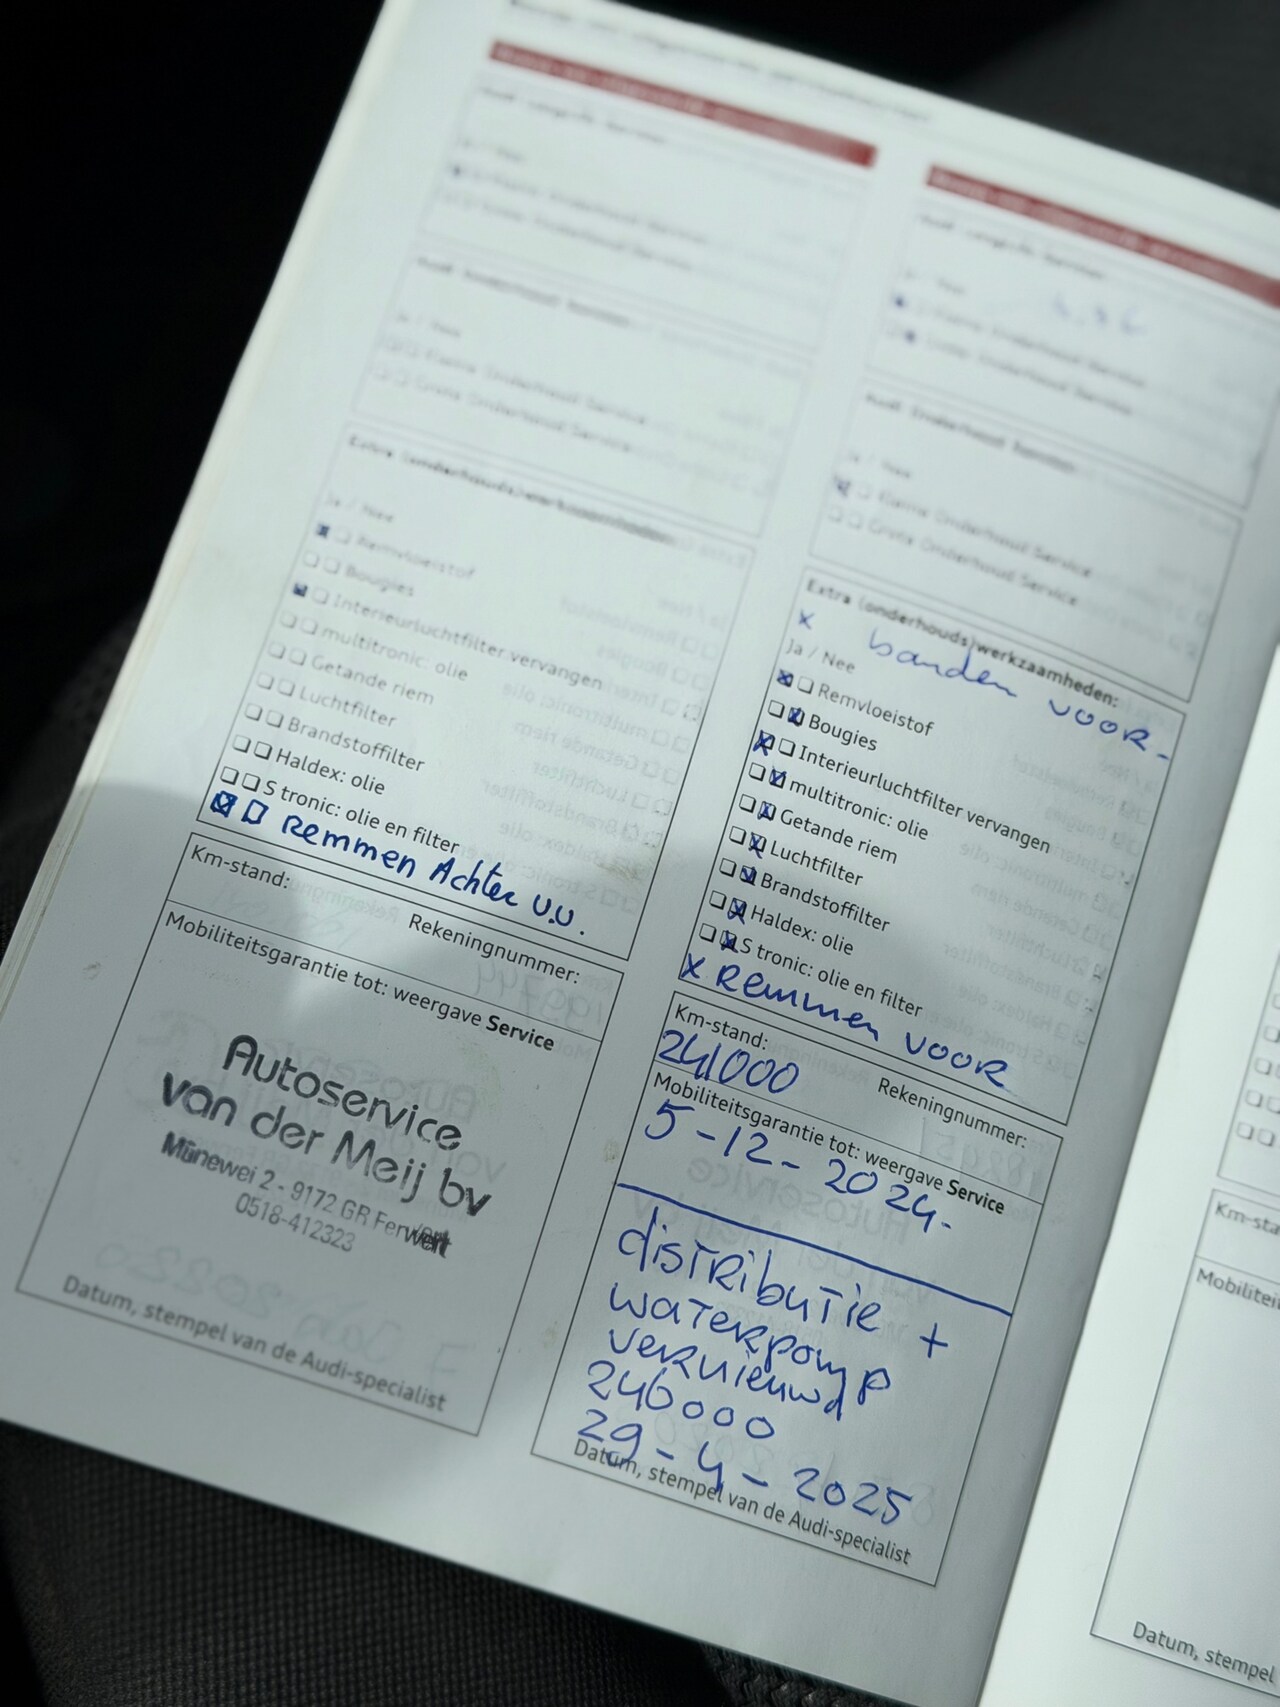 Ja / Nee
Kleine Onderhoud Service
Grote Onderhoud Service
Extra (onderhouds)werkzaamheden:
Ja / Nee
Remvloeistof
Bougies
Interieurluchtfilter vervangen
multitronic: olie
Getande riem
Luchtfilter
Brandstoffilter
Haldex: olie
S tronic: olie en filter
Remmen Achter v.v.
Km-stand:
Rekeningnummer:
Mobiliteitsgarantie tot: weergave Service
Autoservice
van der Meij bv
Mûnewei 2 - 9172 GR Ferwert
0518-412323
Datum, stempel van de Audi-specialist
Ja / Nee
Kleine Onderhoud Service
Grote Onderhoud Service
Extra (onderhouds)werkzaamheden:
x banden voor-
Ja / Nee
Remvloeistof
Bougies
Interieurluchtfilter vervangen
multitronic: olie
Getande riem
Luchtfilter
Brandstoffilter
Haldex: olie
S tronic: olie en filter
x Remmen voor
Km-stand:
241000
Rekeningnummer:
Mobiliteitsgarantie tot: weergave Service
5-12-2024-
distributie +
waterpomp
vernieuwd
246000
29-4-2025
Datum, stempel van de Audi-specialist
Km-sta
Mobilitei
Datum, stempel